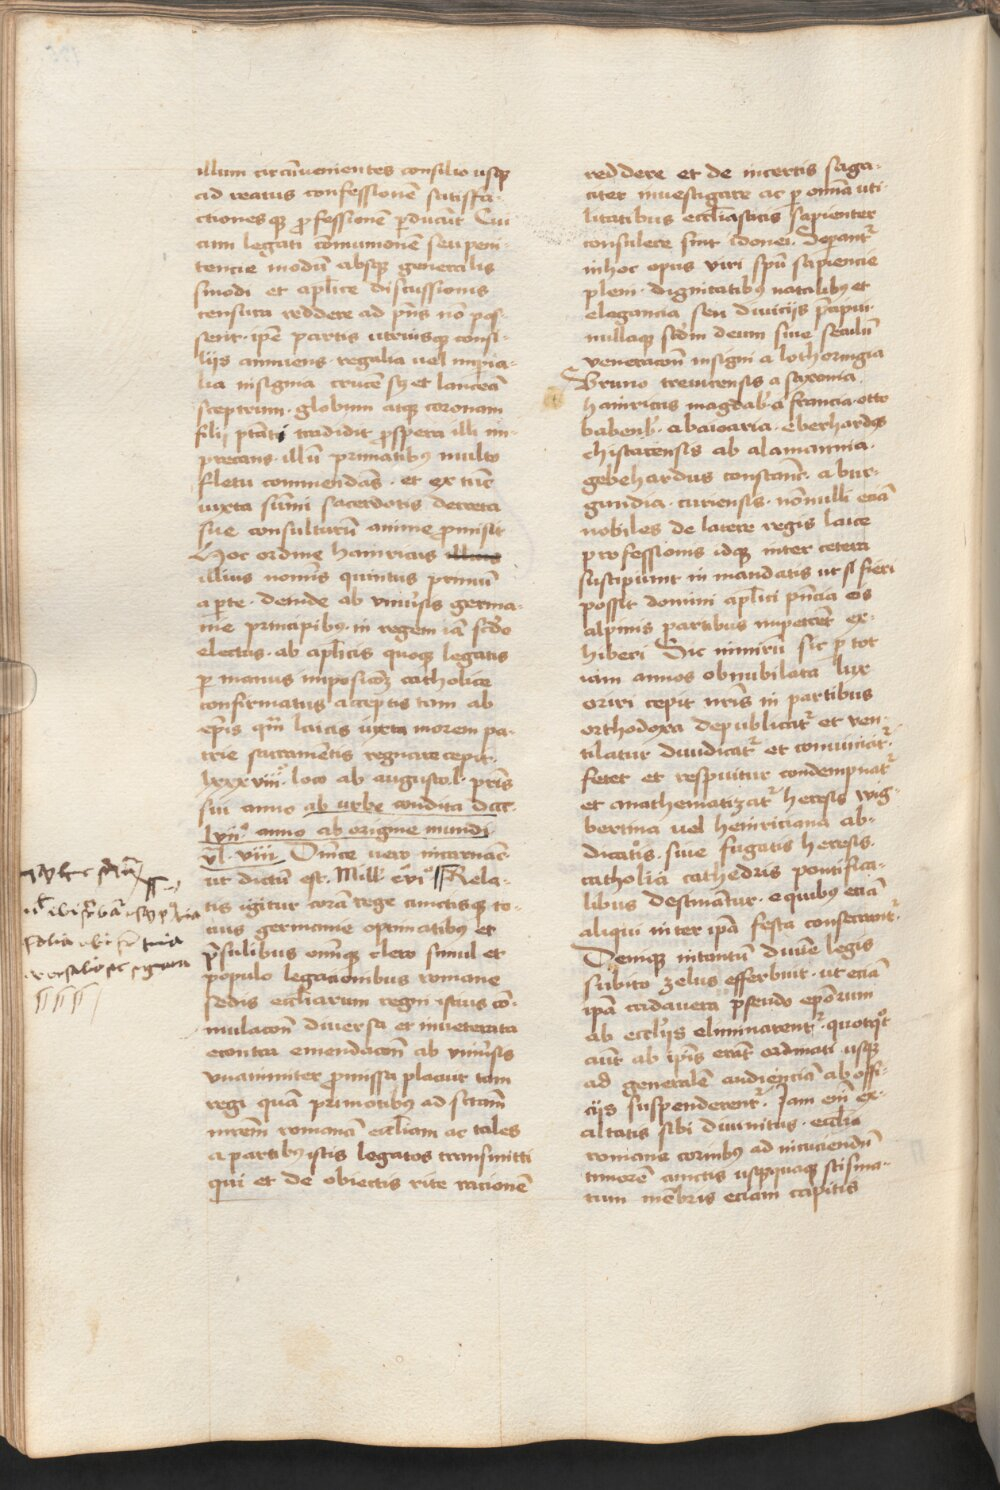 illum circūvenientes consilio usqꝫ
ad reatus confessionē satisfa-
ctionesqꝫ ꝓfessionē ꝑducūt Cui
cum legati cōmunionē seu peni-
tencie modū absqꝫ generalis
sinodi et aplice discussionis
censura reddere ad pn̄s nō pos-
sent· ipē partis utriusqꝫ consi-
lijs annuens· regalia vel impia-
lia insignia crucē sꝫ et lanceā
sceptrum· globum atqꝫ coronam
filij ptāti tradidit ꝓspera illi im-
precans· illū primatibꝰ multo
fletu commendās· et ex tūc
iuxta sūmi sacerdotis decreta
sue consulturū anime ꝓmisit
Hoc ordine hainricus
illius nomīs quintus primū
a pr̄e· deinde ab vniūsis germa-
nie principibꝰ· in regem iā scd̄o
electus· ab aplicis quoqꝫ legatis
ꝑ manus imposicōꝫ catholice
confirmatus acceptis tam ab
ep̄is qm̄ laicis iuxta morem pa-
trie sacramētis regnare cepit·
lxxxviiiꝰ· loco ab augusto· l· pm̄s
sui anno ab urbe condita dcc-
lviiꝰ· anno ab origine mundi
v̄l· viii· Dīnice vero incarnac̄
ut dictū est· Mill· cviͦ Rela-
tis igitur corā rege cunctisqꝫ to-
cius germanie optimatibꝰ et
p̄sulibus om̄iqꝫ clero simul et
populo legacionibus romane
sedis eccl̄iarum regni istius cō-
mulacōn diversa et inveterata
econtra emendacōn ab vniūsis
vnanimiter ꝓmissa placuit tam
regi quā primatibꝰ ad sc̄tam
mr̄em romanā eccl̄iam ac tales
a partibꝰ istis legatos transmitti
qui et de obiectis rite racionē
reddere et de incertis saga-
citer investigare ac ꝑ om̄ia uti-
litatibus eccl̄iasticis sapienter
consulere sint idonei· Seperantᷣ
in hoc opus viri spū sapiencie
pleni· dignitatibꝰ natalibꝰ et
elegancia seu divicijs p̄cipui·
nullaqꝫ scd̄m deum sive seculū
veneracōn insigni a lothoringia
Bruno trevirensis a saxonia
hainricus magdab̄· a francia· otto
babenb̄· a baioaria· eberhardꝰ
chistatensis ab alamannia·
gebehardus constanc̄· a bur-
gundia· curiensis· nōnulli eciā
nobiles de latere regis laice
professionis idqꝫ inter cetera
suscipiunt in mandatis ut si fieri
possit domini aplici pn̄cia cis
alpinis partibus impetret ex-
hiberi Sic nimirū sic ꝑ tot
iam annos obnubilata lux
oriri cepit nr̄is in partibus
orthodoxa depublicatᷣ et ven-
tilatur diiudicatᷣ et convincitᷣ·
fetet et respuitur condempnatᷣ
et anathematizatᷣ heresis wig-
bertina vel heinriciana ab-
dicatis· sive fugatis heresis·
catholici cathedris pontifica-
libus destinātur· e quibus eciā
aliqui inter ipā festa consecrantᷣ·
Denique intantū divīe legis
subito zelus efferbuit· ut eciā
ipā cadavera pseudo ep̄orum
ab eccl̄ijs eliminarentᷣ· quotqͦt
aūt ab ip̄is erāt ordinati usqꝫ
ad generalē audienciā ab offi-
cijs suspenderentᷣ· Jam em̄ ex-
altatis sibi divinitus· eccl̄ia
romana cornibꝰ ad incuciendū
timorē cunctis usqꝫquaqꝫ scisma-
tum mēbris eciam capitis